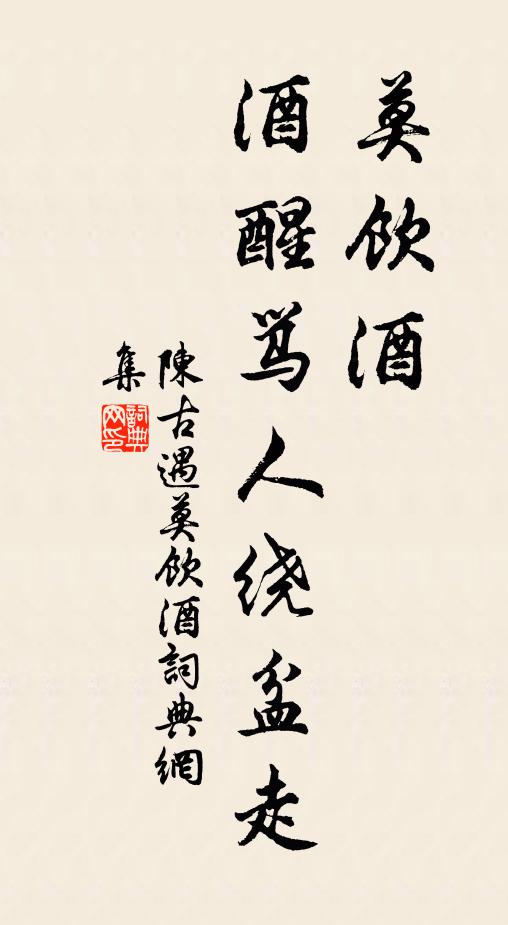 莫饮酒
酒醒骂人绕盆走
陳古遇莫饮酒詞典網
集
詞典网印